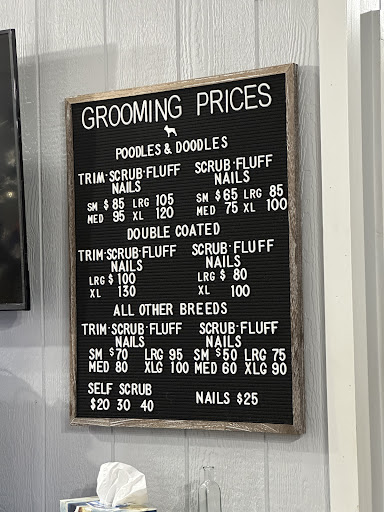 GROOMING PRICES
POODLES & DOODLES
TRIM·SCRUB·FLUFF
NAILS
SM $85 LRG 105
MED 95 XL 120
SCRUB·FLUFF
NAILS
SM $65 LRG 85
MED 75 XL 100
DOUBLE COATED
TRIM·SCRUB·FLUFF
NAILS
LRG $100
XL 130
SCRUB·FLUFF
NAILS
LRG $80
XL 100
ALL OTHER BREEDS
TRIM·SCRUB·FLUFF
NAILS
SM $70 LRG 95
MED 80 XLG 100
SCRUB·FLUFF
NAILS
SM $50 LRG 75
MED 60 XLG 90
SELF SCRUB
$20 30 40
NAILS $25